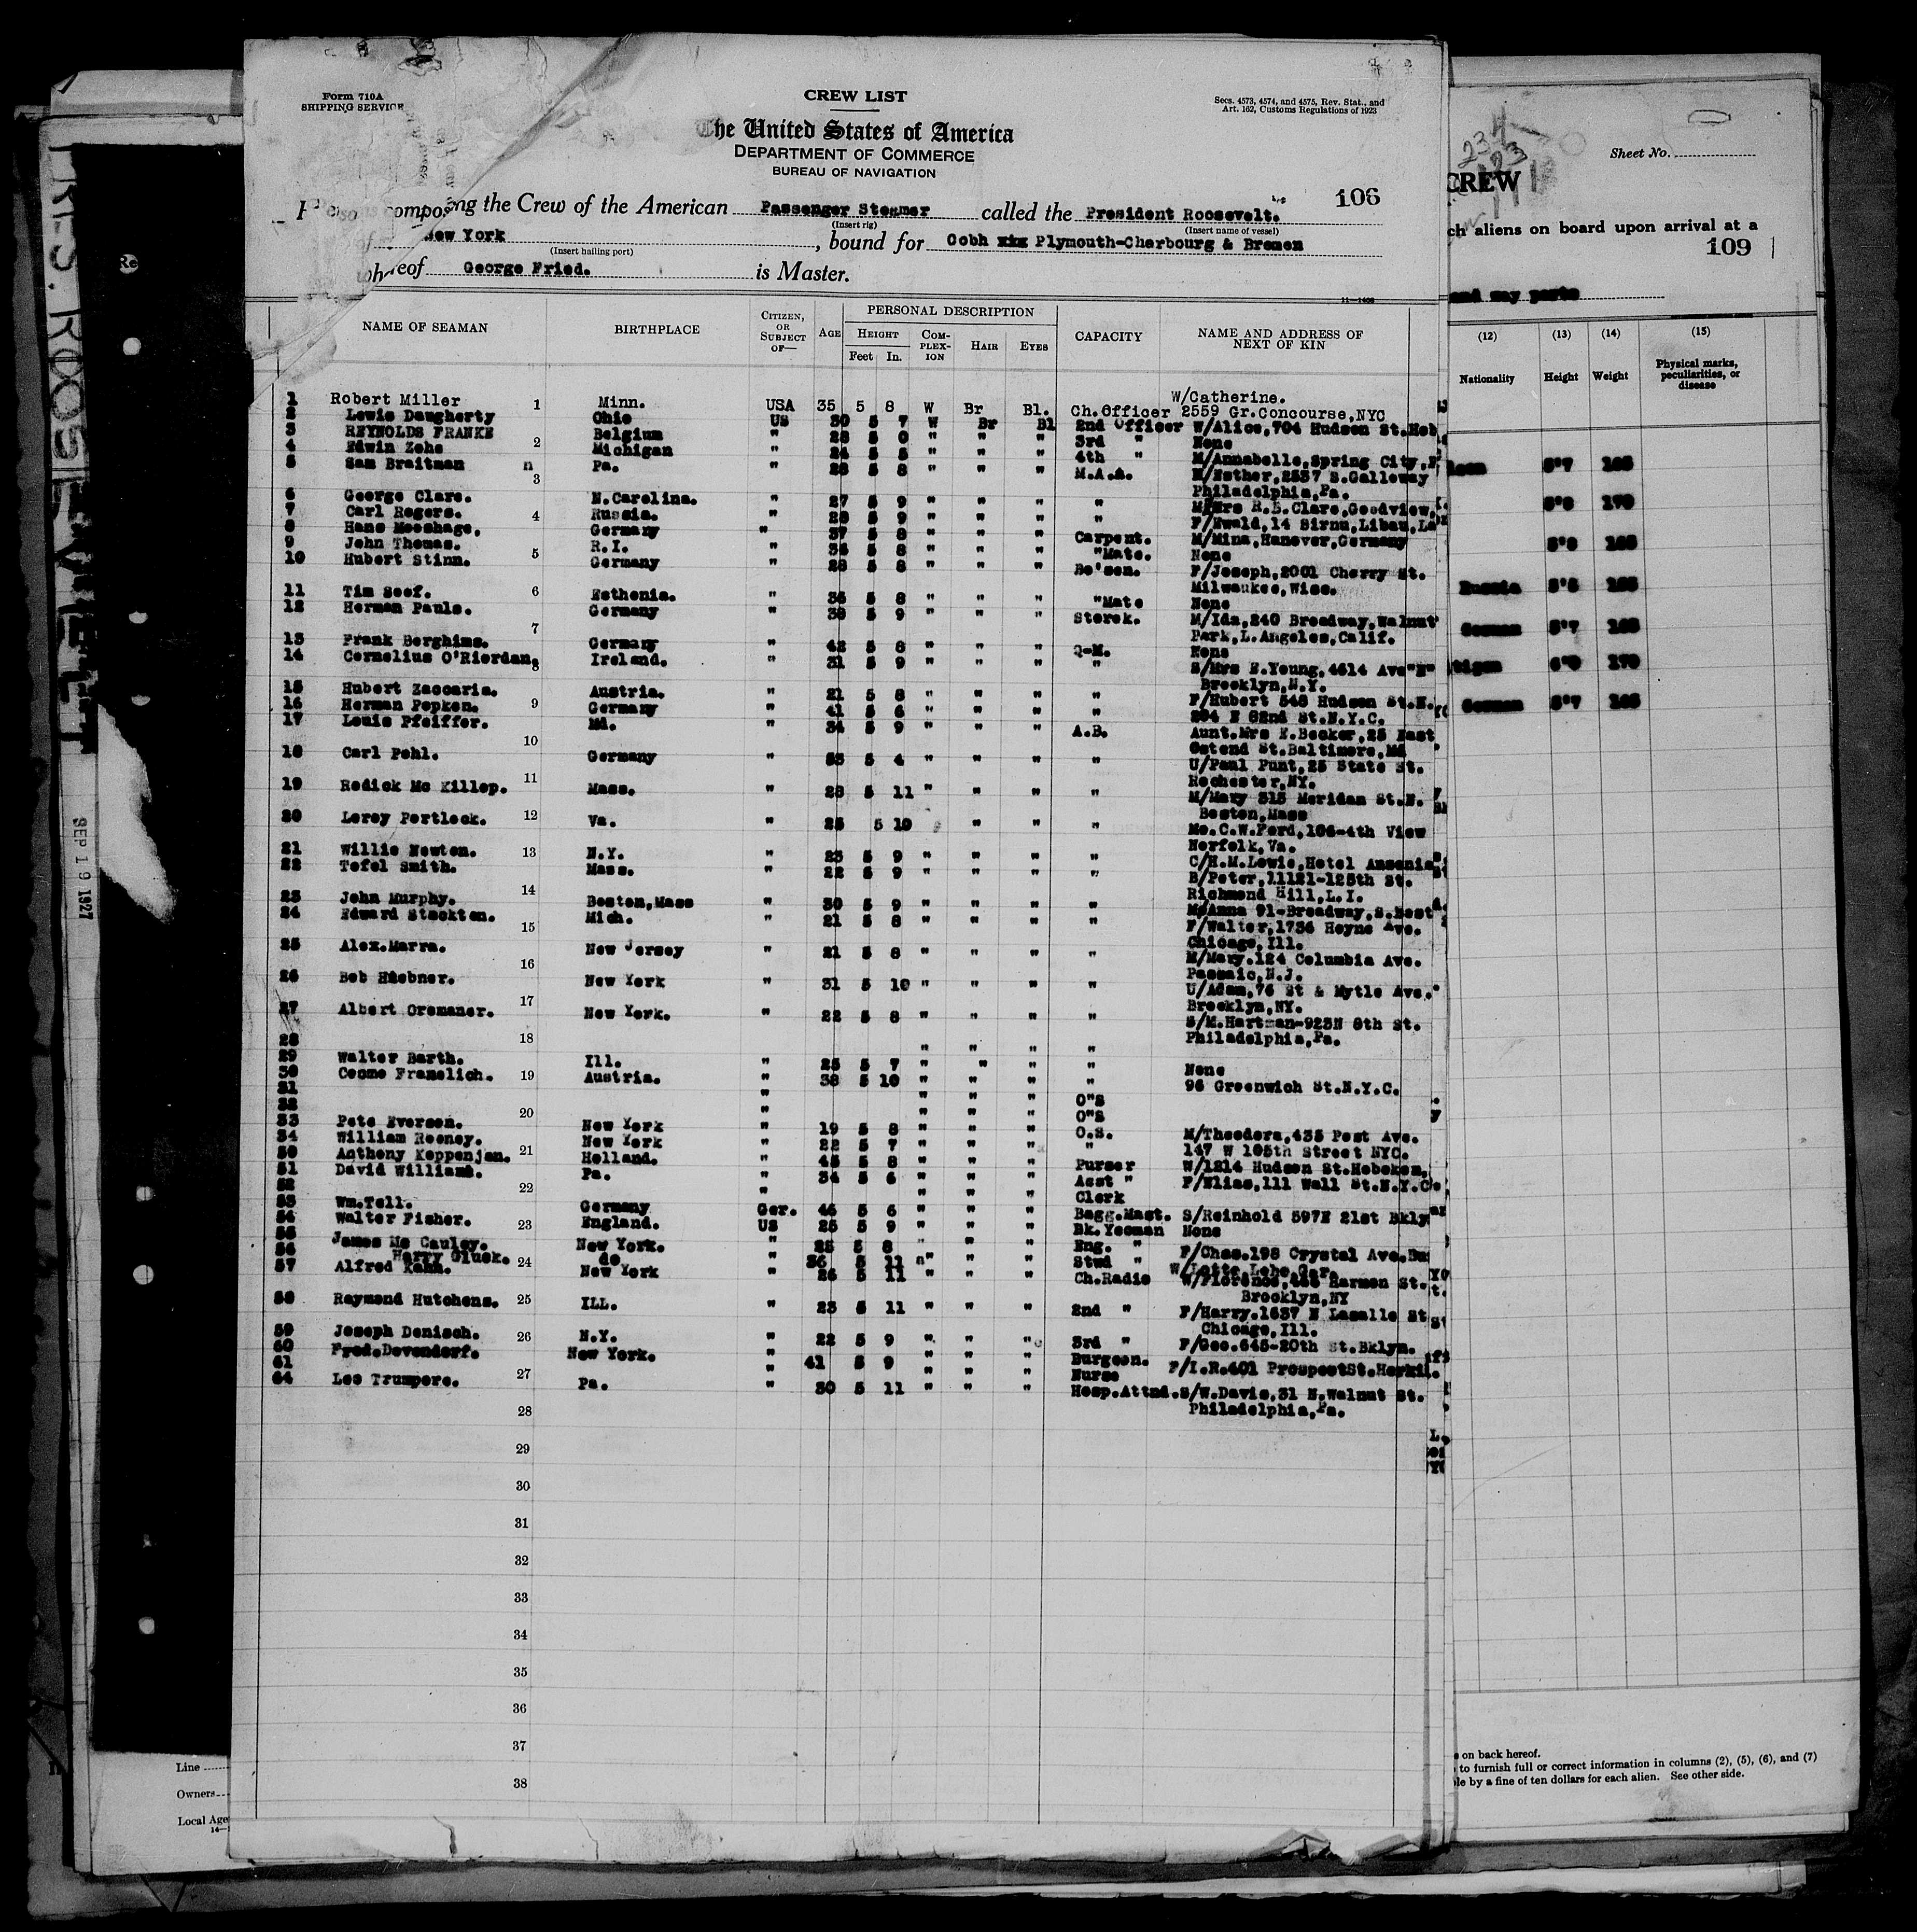 Form 710A
SHIPPING SERVICE
CREW LIST
Secs. 4573, 4574, and 4575, Rev. Stat., and
Art. 162, Customs Regulations of 1923
The United States of America
DEPARTMENT OF COMMERCE
BUREAU OF NAVIGATION
106
composing the Crew of the American Passenger Steamer called the President Roosevelt.
(Insert rig) (Insert name of vessel)
of New York, bound for Cobh Plymouth-Cherbourg & Bremen
(Insert hailing port)
whereof George Fried. is Master.
11—1408
NAME OF SEAMAN BIRTHPLACE CITIZEN, OR SUBJECT OF— AGE PERSONAL DESCRIPTION CAPACITY NAME AND ADDRESS OF NEXT OF KIN
HEIGHT COMPLEXION HAIR EYES
Feet In.
1 Robert Miller 1 Minn. USA 35 5 8 W Br Bl. Ch.Officer W/Catherine. 2559 Gr.Concourse,NYC
2 Lewis Daugherty Ohio US 30 5 7 W Br Bl 2nd Officer W/Alice,704 Hudson St.Hob
3 REYNOLDS FRANKE Belgium " 5 " " " 3rd " None
4 Edwin Zehe 2 Michigan " 24 5 " " " 4th " M/Annabelle,Spring City,P
5 Sam Braitman n 3 Pa. " 28 5 8 " " " M.A.A. M/Esther,2537 S.Galloway
Philadelphia,Pa.
6 George Clare. N.Carolina. " 27 5 9 " " " " Mrs R.B.Clare,Goodview,
7 Carl Rogers. 4 Russia. " 28 5 9 " " " " F/Ewald,14 Sirnu,Libau,La
8 Hans Meeshage. Germany " 37 5 8 " " " Carpent. M/Mina,Hanover,Germany
9 John Thomas. 5 R.I. " 5 8 " " " "Mate. None
10 Hubert Stinn. Germany " 28 5 8 " " " Bo'sen. F/Joseph,2001 Cherry St.
Milwaukee,Wisc.
11 Tim Seef. 6 Esthenia. " 5 8 " " " "Mate None
12 Herman Pauls. 7 Germany " 5 9 " " " Storek. M/Ida,240 Broadway,Walnut
Park,L.Angeles,Calif.
13 Frank Berghims. Germany " 42 5 8 " " " Q-M. None
14 Cornelius O'Riordan. 8 Ireland. " 31 5 9 " " " " S/Mrs E.Young,4614 Ave"N"
Brooklyn,N.Y.
15 Hubert Zaccaria. 9 Austria. " 21 5 8 " " " " F/Hubert 548 Hudson St.N.
16 Herman Popken. Germany " 41 5 6 " " " " 204 E 82nd St.N.Y.C.
17 Louis Pfeiffer. 10 Md. " 34 5 9 " " " A.B. Aunt.Mrs E.Becker,25 East
Ostend St.Baltimore,Md
18 Carl Pohl. Germany " 5 4 " " " " U/Paul Punt,25 State St.
Rochester,NY.
19 Redick Mc Killop. 11 Mass. " 28 5 11 " " " " M/Mary 315 Meridan St.E.
Boston,Mass
20 Leroy Portlock. 12 Va. " 25 5 10 " " " Mo.C.W.Ford,106-4th View
Norfolk,Va.
21 Willie Newton. 13 N.Y. " 23 5 9 " " " " C/H.M.Lewis,Hotel Ansonia
22 Tefel Smith. Mass. " 22 5 9 " " " " B/Peter,11121-125th St.
Richmond Hill,L.I.
23 John Murphy. 14 Boston,Mass " 30 5 9 " " " " M/Anna 91-Broadway,S.Bost
24 Edward Stockton. 15 Mich. " 21 5 8 " " " " F/Walter,1736 Hoyne Ave.
Chicago,Ill.
25 Alex.Marra. 16 New Jersey " 21 5 8 " " " " M/Mary.124 Columbia Ave.
Passaic,N.J.
26 Bob Huebner. New York " 31 5 10 " " " " U/Adam,76 St & Mytle Ave.
Brooklyn,NY.
27 Albert Cremaner. 17 New York. " 22 5 8 " " " " S/M.Hartman-923N 8th St.
Philadelphia,Pa.
28 18 " " " "
29 Walter Barth. Ill. " 25 5 7 " " " " None
30 Cosmo Franelich. 19 Austria. " 38 5 10 " " " " 96 Greenwich St.N.Y.C.
31 " " " " O"S
32 20 " " " " O"S
33 Pete Eversen. New York " 19 5 8 " " " O.S. M/Theodora,435 Post Ave.
34 William Rooney. New York " 22 5 7 " " " " 147 W 105th Street NYC.
50 Anthony Koppenjan. 21 Holland. " 45 5 8 " " " Purser W/1214 Hudson St.Hoboken,
51 David Williams. Pa. " 34 5 6 " " " Asst " F/Elias,111 Wall St.N.Y.C
52 22 " " " " Clerk
53 Wm.Tell. Germany Ger. 46 5 6 " " " Bagg.Mast. S/Reinhold 597E 21st Bkly
54 Walter Fisher. 23 England. US 25 5 9 " " " Bk.Yeoman None
55 James Mc Cauley. New York. " 25 5 8 " " " Eng. " F/Chas.198 Crystal Ave.
56 Harry Gluck. 24 do " 36 5 11 " " " Stwd " W/Lotte Lehe,Ger.
57 Alfred Kahn. New York " 26 5 11 " " " Ch.Radio W/Florence, Harmon St.
Brooklyn,NY
58 Raymond Hutchens. 25 ILL. " 23 5 11 " " " 2nd " F/Harry.1637 N Lasalle St
Chicago,Ill.
59 Joseph Denisch. 26 N.Y. " 22 5 9 " " " 3rd " F/Geo.645-20th St.Bklyn.
60 Fred.Devendorf. New York. " 41 5 9 " " " Surgeon. F/I.R.401 ProspectSt.Herkil.
61 " " " " Nurse
64 Leo Trumpore. 27 Pa. " 30 5 11 " " " Hosp.Attnd. S/W.Davis,31 N.Walnut St.
Philadelphia,Pa.
28
29
30
31
32
33
34
35
36
37
38
PRES. ROOSEVELT
SEP 19 1927
Re
Line
Owners
Local Age
14—
234
123
Sheet No.
CREW
ch aliens on board upon arrival at a
109
and way ports
(12) (13) (14) (15)
Nationality Height Weight Physical marks, peculiarities, or disease
5'7 165
5'8 170
5'8 165
Russia 5'6 165
German 5'7 165
170
German 5'7 165
on back hereof.
to furnish full or correct information in columns (2), (5), (6), and (7)
le by a fine of ten dollars for each alien. See other side.